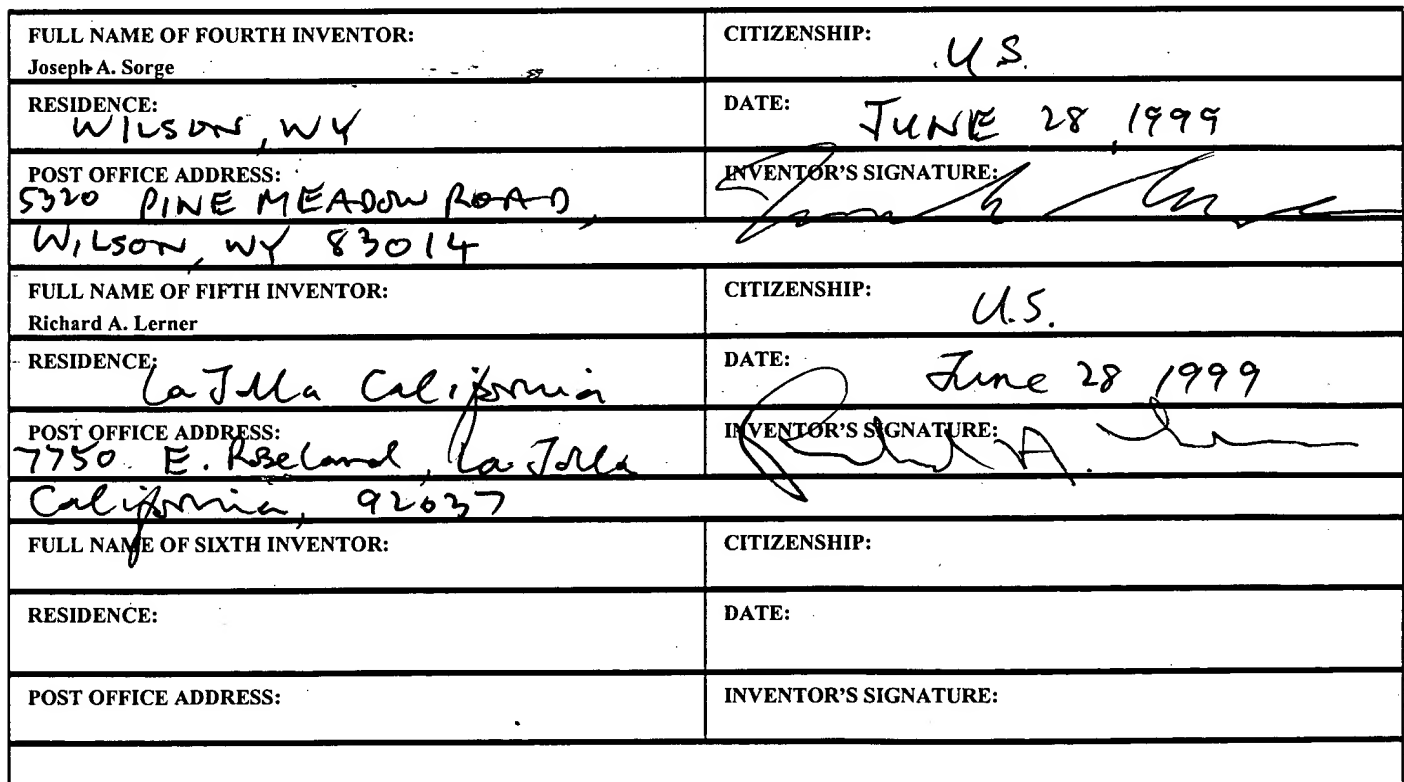 FULL NAME OF FOURTH INVENTOR:
Joseph A. Sorge
CITIZENSHIP:
U.S.
RESIDENCE:
WILSON, WY
DATE:
JUNE 28, 1999
POST OFFICE ADDRESS:
5320 PINE MEADOW ROAD,
WILSON, WY 83014
INVENTOR'S SIGNATURE:
FULL NAME OF FIFTH INVENTOR:
Richard A. Lerner
CITIZENSHIP:
U.S.
RESIDENCE:
La Jolla California
DATE:
June 28, 1999
POST OFFICE ADDRESS:
7750 E. Roseland, La Jolla
California, 92037
INVENTOR'S SIGNATURE:
FULL NAME OF SIXTH INVENTOR:
CITIZENSHIP:
RESIDENCE:
DATE:
POST OFFICE ADDRESS:
INVENTOR'S SIGNATURE: